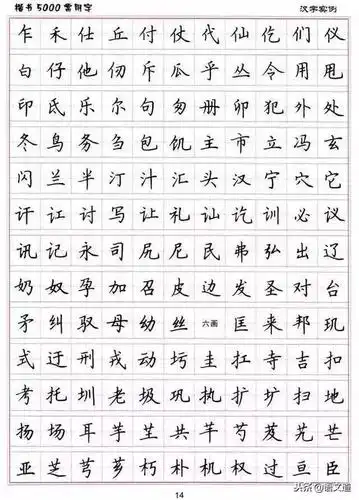 楷书5000常用字 汉字实例
乍 禾 仕 丘 付 仗 代 仙 仡 们 仪
白 仔 他 仞 斥 瓜 乎 丛 令 用 甩
印 氐 乐 尔 句 匆 册 卯 犯 外 处
冬 鸟 务 刍 包 饥 主 市 立 冯 玄
闪 兰 半 汀 汁 汇 头 汉 宁 穴 它
讦 讧 讨 写 让 礼 讪 讫 训 必 议
讯 记 永 司 尻 尼 民 弗 弘 出 辽
奶 奴 孕 加 召 皮 边 发 圣 对 台
矛 纠 驭 母 幼 丝 六画 匡 来 邦 玑
式 迂 刑 戎 动 圬 圭 扛 寺 吉 扣
考 托 圳 老 圾 巩 执 扩 圹 扫 地
扬 场 耳 芋 芏 共 芊 芍 芨 芄 芒
亚 芝 芎 芗 朽 朴 机 权 过 亘 臣
14
头条@语文道